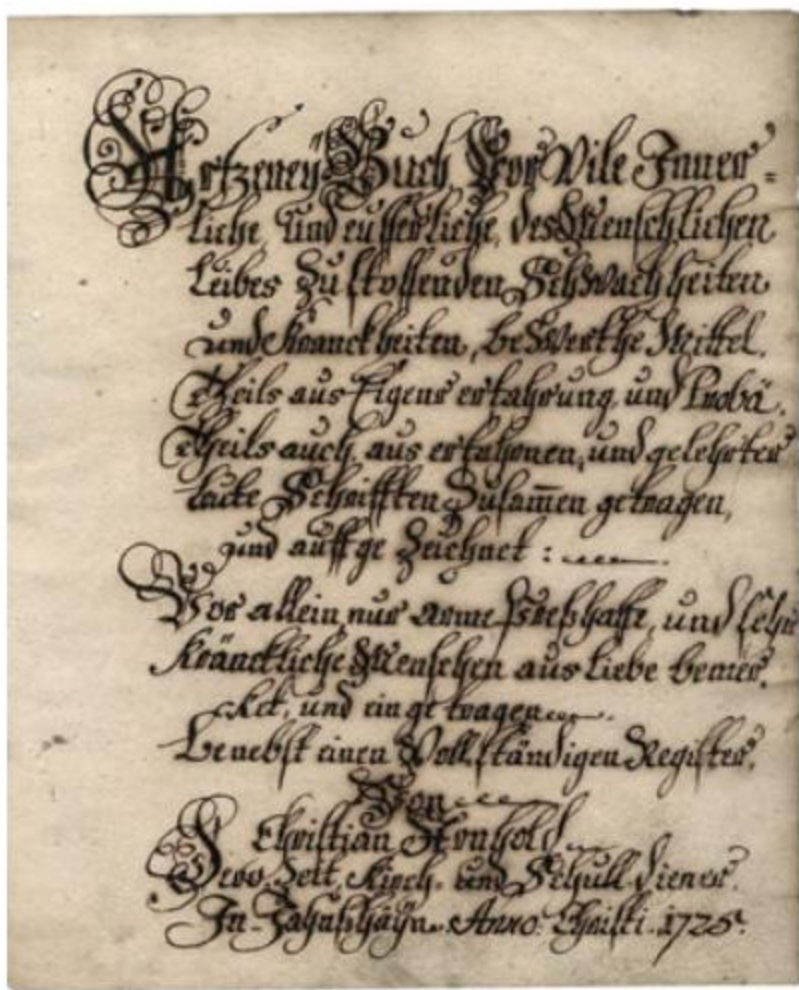 Artzeney-Buch Vor Vile Inner=
liche, und eusserliche, des Menschlichen
Leibes Zustossenden Schwachheiten
und Kranckheiten, bewerthe Mittel.
Theils aus Eigener erfahrung, und Probä.
Theils auch, aus erfahrnen, und gelehrter
Leute Schrifften Zusam̄en getragen,
und auffgezeichnet :
Vor allein nur arme presthaffte, und sehr
Kränckliche Menschen aus Liebe bemer.
cket, und eingetragen.
benebst einen Vollständigen Register.
Von
Christian
Zeit Kirch- und Schull diener.
In Anno: Christi. 1725.